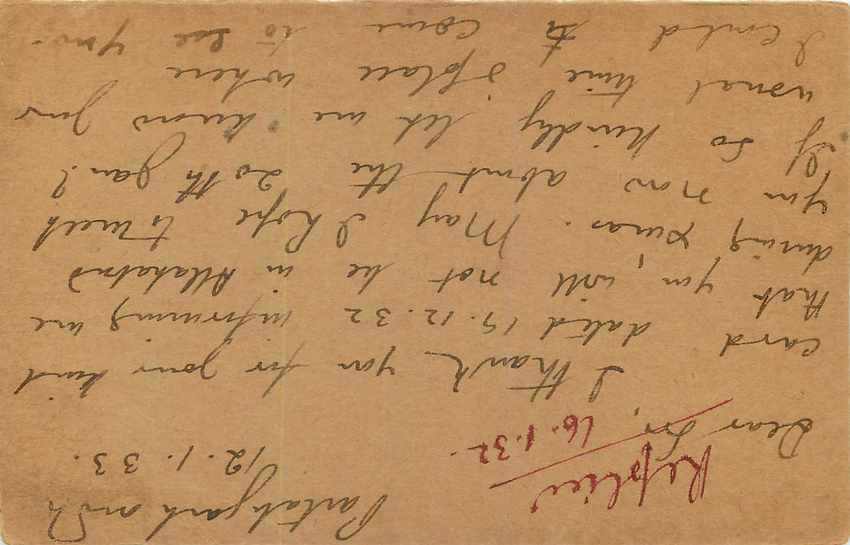 Partabgarh Oudh
12.1.33.
Replied
16.1.32.
Dear Sir,
I thank you for your kind
card dated 15.12.32 informing me
that you will not be in Allahabad
during Xmas. May I hope to meet
you now about the 20th Jan?
If so kindly let me know your
usual time & place where
I could come to see you.